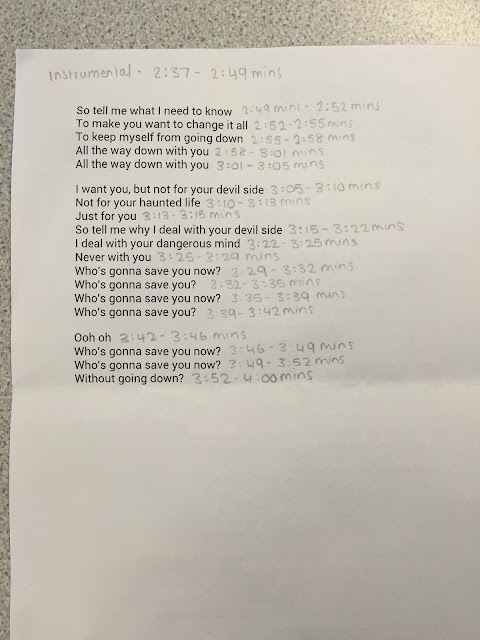 Instrumental - 2:37 - 2:49 mins
So tell me what I need to know 2:49 mins - 2:52 mins
To make you want to change it all 2:52 - 2:55 mins
To keep myself from going down 2:55 - 2:58 mins
All the way down with you 2:58 - 3:01 mins
All the way down with you 3:01 - 3:05 mins
I want you, but not for your devil side 3:05 - 3:10 mins
Not for your haunted life 3:10 - 3:13 mins
Just for you 3:13 - 3:15 mins
So tell me why I deal with your devil side 3:15 - 3:22 mins
I deal with your dangerous mind 3:22 - 3:25 mins
Never with you 3:25 - 3:29 mins
Who's gonna save you now? 3.29 - 3:32 mins
Who's gonna save you? 3:32 - 3:35 mins
Who's gonna save you now? 3.35 - 3:39 mins
Who's gonna save you? 3:39 - 3:42 mins
Ooh oh 3:42 - 3:46 mins
Who's gonna save you now? 3:46 - 3.49 mins
Who's gonna save you now? 3:49 - 3:52 mins
Without going down? 3:52 - 4:00 mins